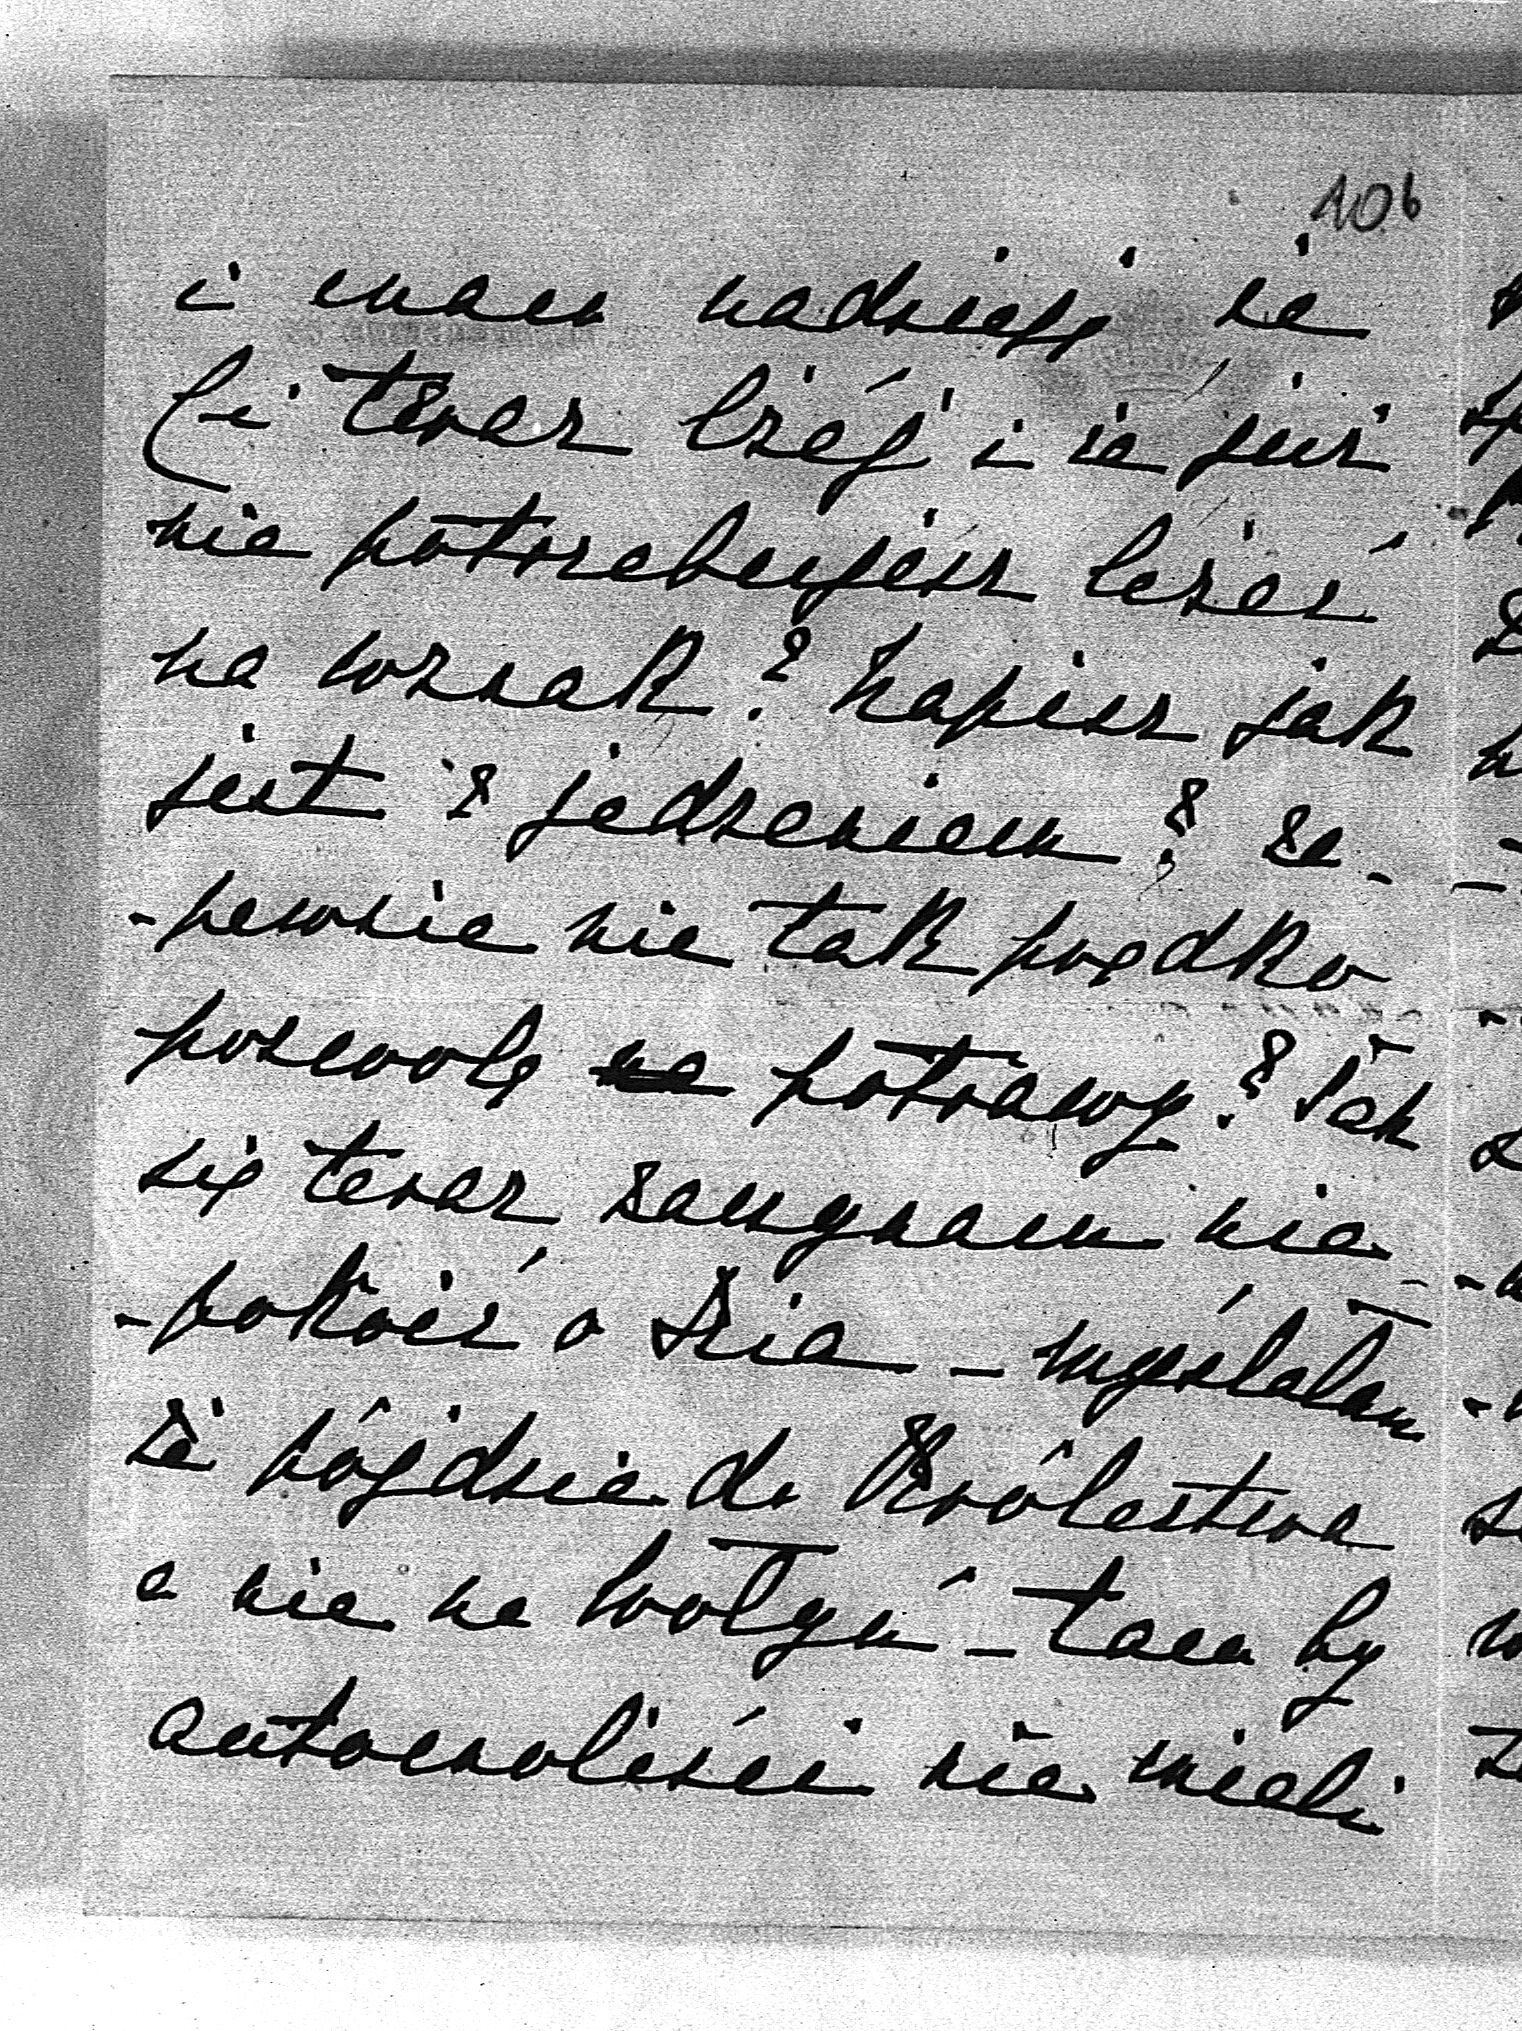 106
i mam nadzieję że
Ci teraz lżéj i że już
nie potrzebujesz leżeć
na wznak? Napisz jak
jest z jedzeniem? za-
-pewnie nie tak prędko
pozwolą na potrawy? Tak
się teraz zaczynam nie-
-pokoić o Zzia - myślałam
że pójdzie do Królestwa
a nie na Wołyń - tam by
autoności nie mieli